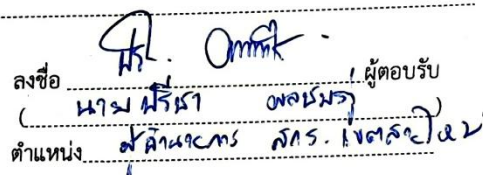 ลงชื่อ ผู้ตอบรับ
( นายปรีชา )
ตำแหน่ง ผู้อำนวยการ สกร. เขตสายไหม